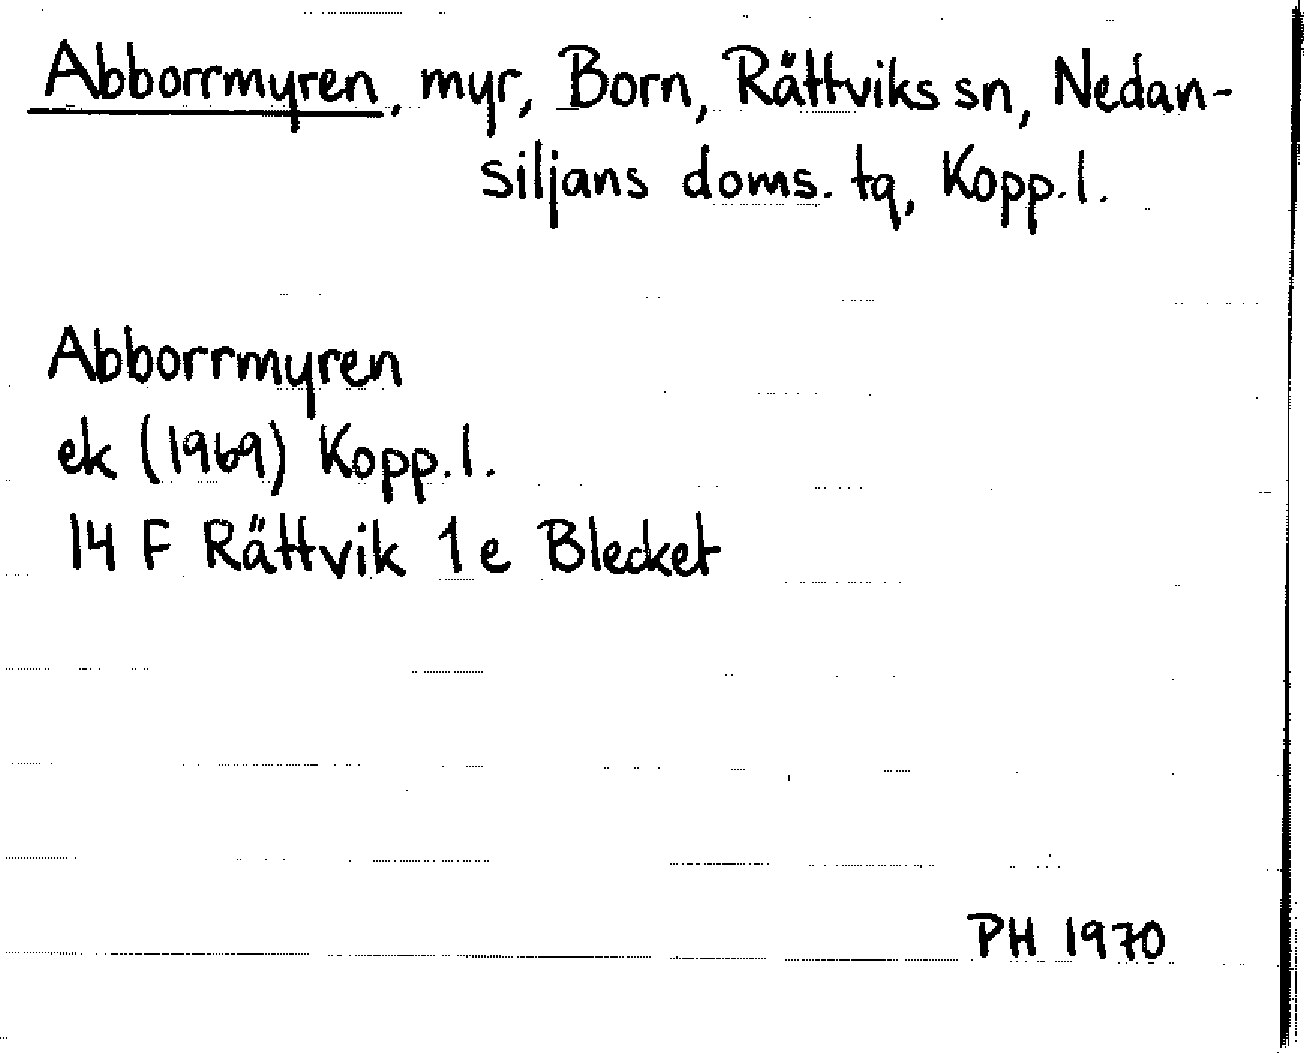 Abborrmyren, myr, Born, Rättviks sn, Nedan-
siljans doms. tg, Kopp. l.
Abborrmyren
ek (1969) Kopp. l.
14 F Rättvik 1e Blecket
PH 1970